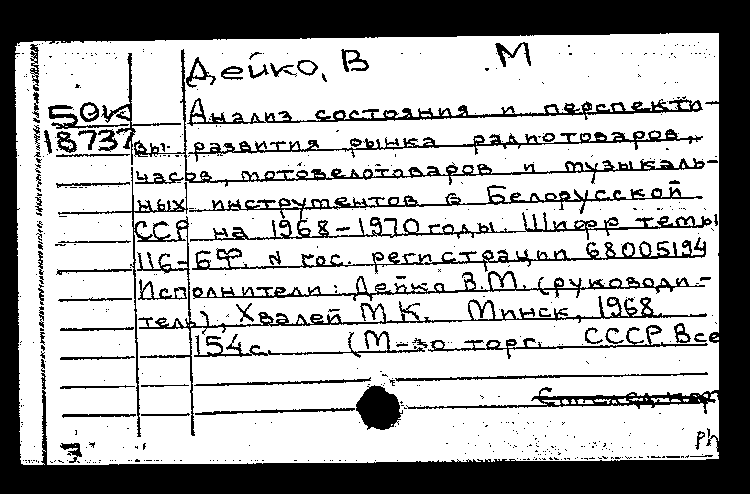 Дейко, В М
50к
18737
Анализ состояния и перспекти-
вы развития рынка радиотоваров,
часов, мотовелотоваров и музыкаль-
ных инструментов в Белорусской
ССР на 1968-1970 годы. Шифр темы
116-БФ. N гос. регистрации 68005194
Исполнители: Дейко В.М. (руководи-
тель), Хвалей М.К. Минск, 1968.
154 с. (М-во торг. СССР. Все
См. след. кар
Ph